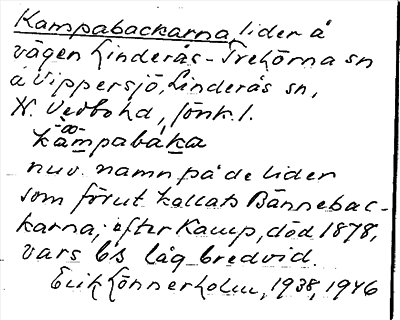 Kampabackarna, lider å
vägen Linderås-Trekörna sn
å Vippersjö, Linderås sn,
N. Vedbo hd, Jönk. l.
kàmpabáka
nuv. namn på de lider
som förut kallats Bännebac-
karna, efter Kamp, död 1878,
vars bs låg bredvid.
Erik Lönnerholm, 1938, 1946